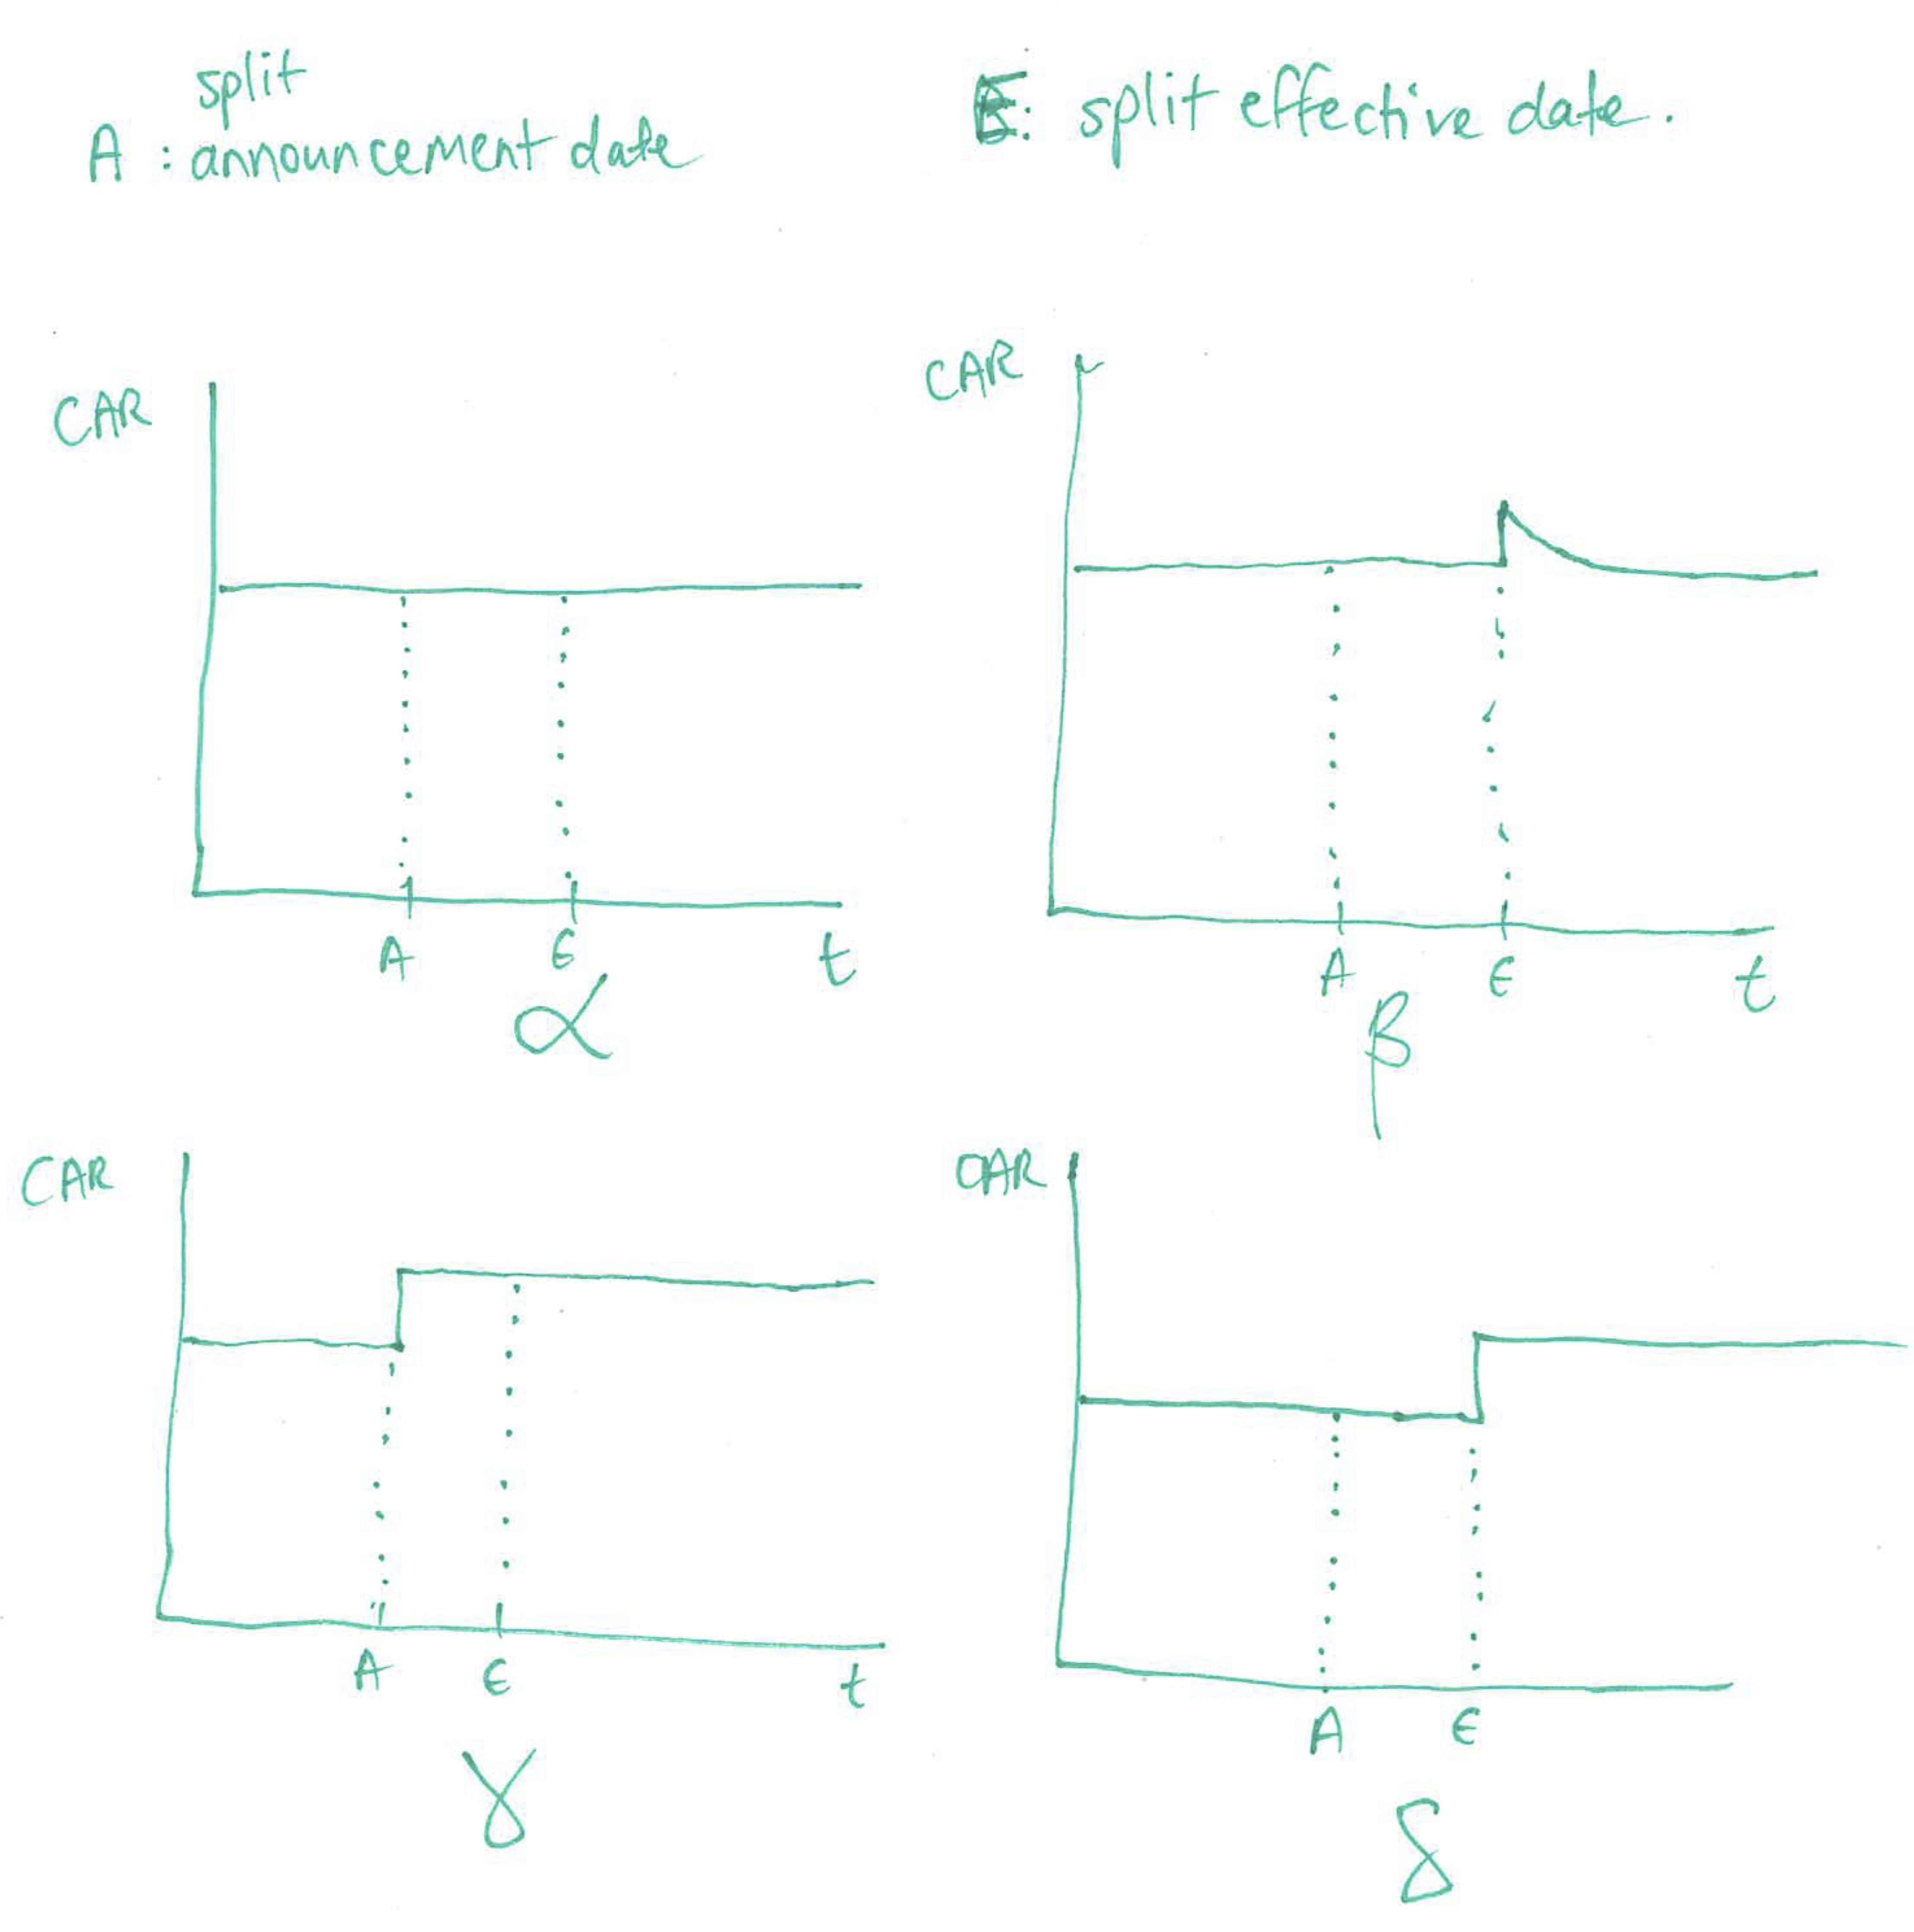 split
A : announcement date
E: split effective date.
CAR
A E t
α
CAR
A E t
β
CAR
A E t
γ
CAR
A E
δ